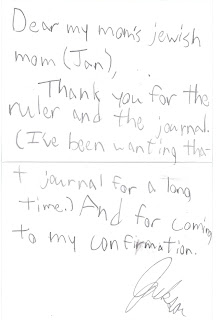 Dear my mom's jewish
mom (Jan),
Thank you for the
ruler and the journal.
(I've been wanting tha-
t journal for a long
time.) And for coming
to my confirmation.
Jackson